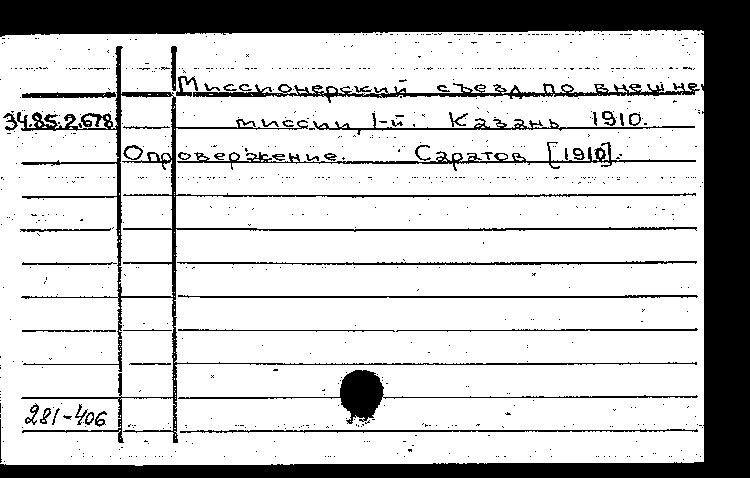 Миссионерский съезд по внешней
34.85.2.678 миссии, 1-й. Казань 1910.
Опровержение. Саратов [1910].
281-406